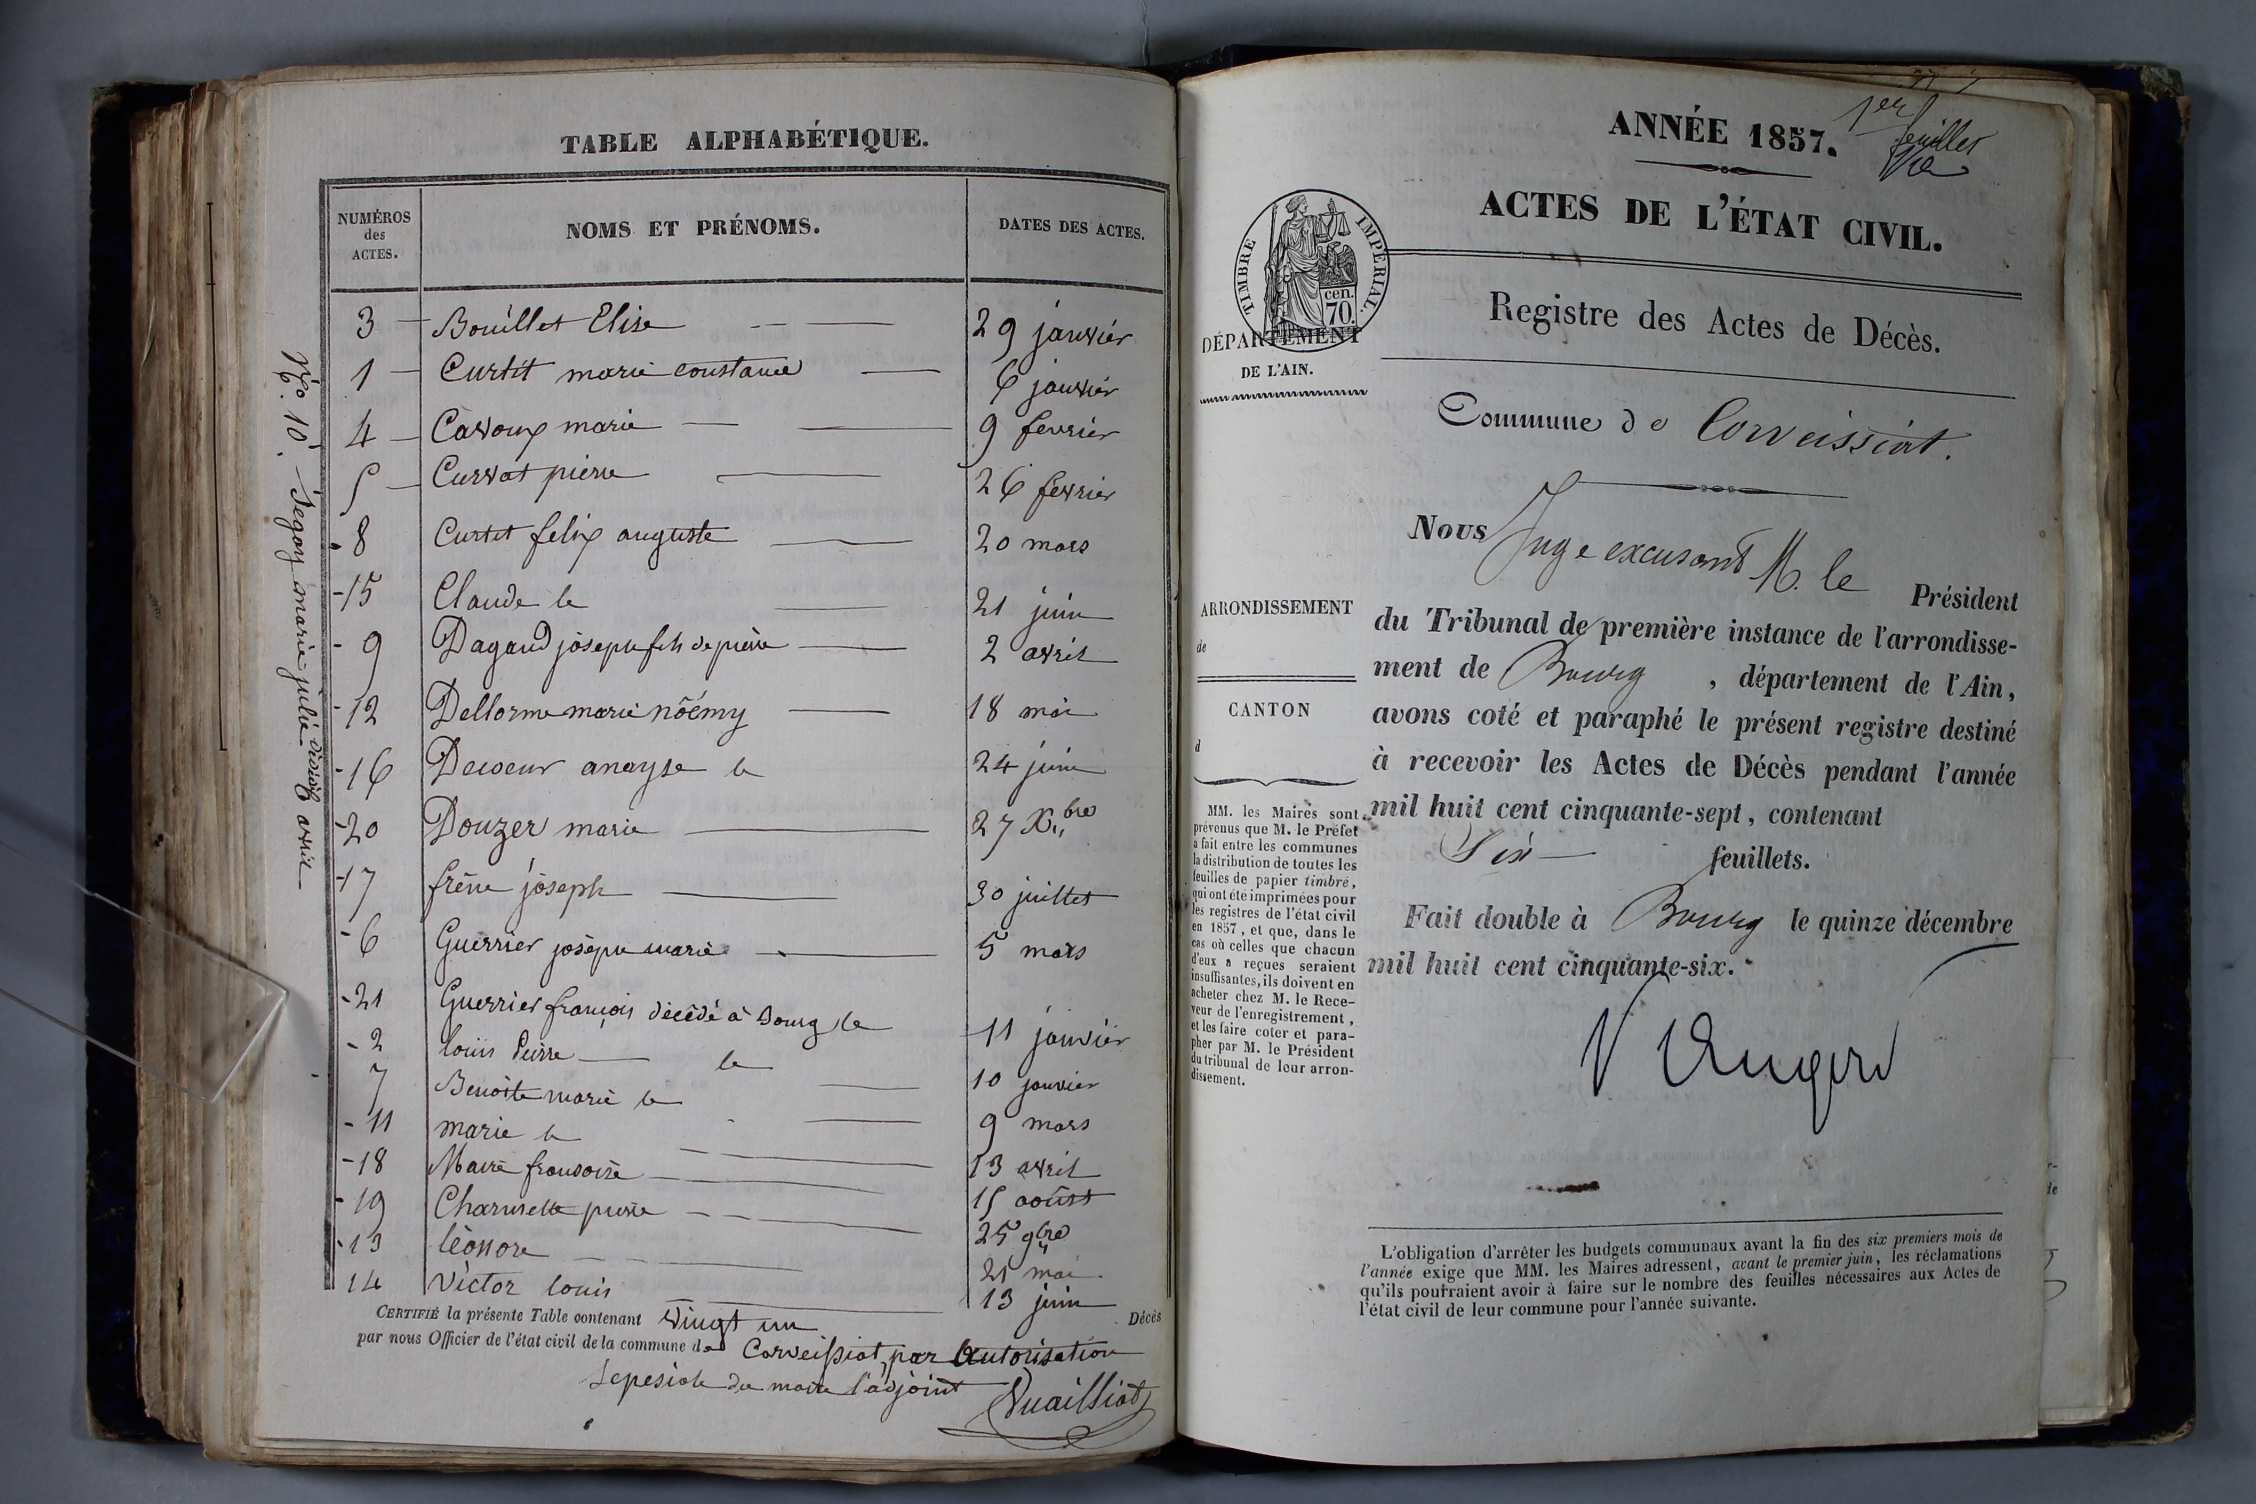 TABLE ALPHABÉTIQUE.
NUMÉROS des ACTES. NOMS ET PRÉNOMS. DATES DES ACTES.
3 Bouillet Elise 29 janvier
1 Curtit marie constance 6 janvier
4 Carroux marie 9 fevrier
5 Curvat pierre 26 fevrier
8 Curtit felix auguste 20 mars
15 Claude le 21 juin
9 Dagaud joseph fils de pierre 2 avril
12 Dellorme marie nöémy 18 mai
16 anayse le 24 juin
20 Douzer marie 27 Xbre
17 frêne joseph 30 juillet
6 Guerrier joseph marie 5 mars
21 Guerrier françois décédé à Bourg le 11 janvier
2 louis Pierre le 10 janvier
7 Benoite marie le 9 mars
11 marie le 13 avril
18 Maire 15 aoûst
19 pierre 25 9bre
13 léonore 21 mai
14 victor louis 13 juin
CERTIFIÉ la présente Table contenant vingt un Décès
par nous Officier de l'état civil de la commune de Corveissiat, par autorisation
du maire l'adjoint
Vuailliat
No. 10. Segoy marie julie avril
ANNÉE 1857.
1er feuillet
ACTES DE L'ÉTAT CIVIL.
TIMBRE IMPÉRIAL.
cen.
70.
Registre des Actes de Décès.
DÉPARTEMENT
DE L'AIN.
Commune de Corveissiat.
ARRONDISSEMENT
de
CANTON
d
MM. les Maires sont
prévenus que M. le Préfet
a fait entre les communes
la distribution de toutes les
feuilles de papier timbré,
qui ont été imprimées pour
les registres de l'état civil
en 1857, et que, dans le
cas où celles que chacun
d'eux a reçues seraient
insuffisantes, ils doivent en
acheter chez M. le Rece-
veur de l'enregistrement,
et les faire coter et para-
pher par M. le Président
du tribunal de leur arron-
dissement.
Nous Juge excusant M. le Président
du Tribunal de première instance de l'arrondisse-
ment de Bourg, département de l'Ain,
avons coté et paraphé le présent registre destiné
à recevoir les Actes de Décès pendant l'année
mil huit cent cinquante-sept, contenant
Six feuillets.
Fait double à Bourg le quinze décembre
mil huit cent cinquante-six.
L'obligation d'arrêter les budgets communaux avant la fin des six premiers mois de
l'année exige que MM. les Maires adressent, avant le premier juin, les réclamations
qu'ils pourraient avoir à faire sur le nombre des feuilles nécessaires aux Actes de
l'état civil de leur commune pour l'année suivante.